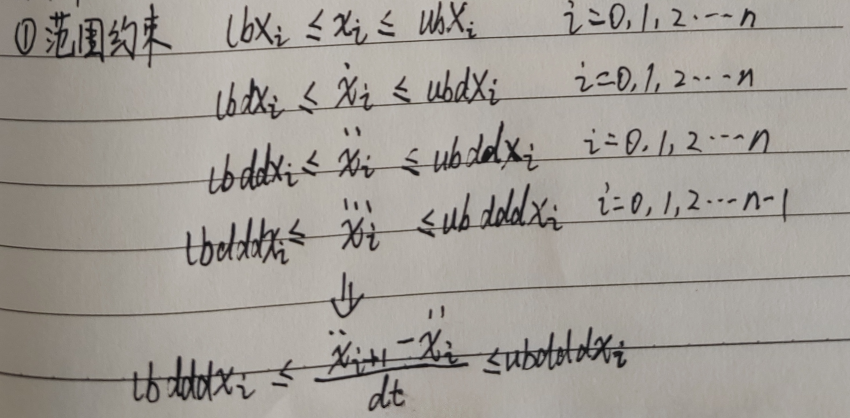 ① 范围约束 lbxᵢ ≤ xᵢ ≤ ubxᵢ i=0,1,2⋯n
lbdxᵢ ≤ ẋᵢ ≤ ubdxᵢ i=0,1,2⋯n
lbddxᵢ ≤ ẍᵢ ≤ ubddxᵢ i=0,1,2⋯n
lbdddxᵢ ≤ x⃛ᵢ ≤ ubdddxᵢ i=0,1,2⋯n-1
⇓
lbdddxᵢ ≤ (ẍᵢ₊₁ - ẍᵢ)/dt ≤ ubdddxᵢ